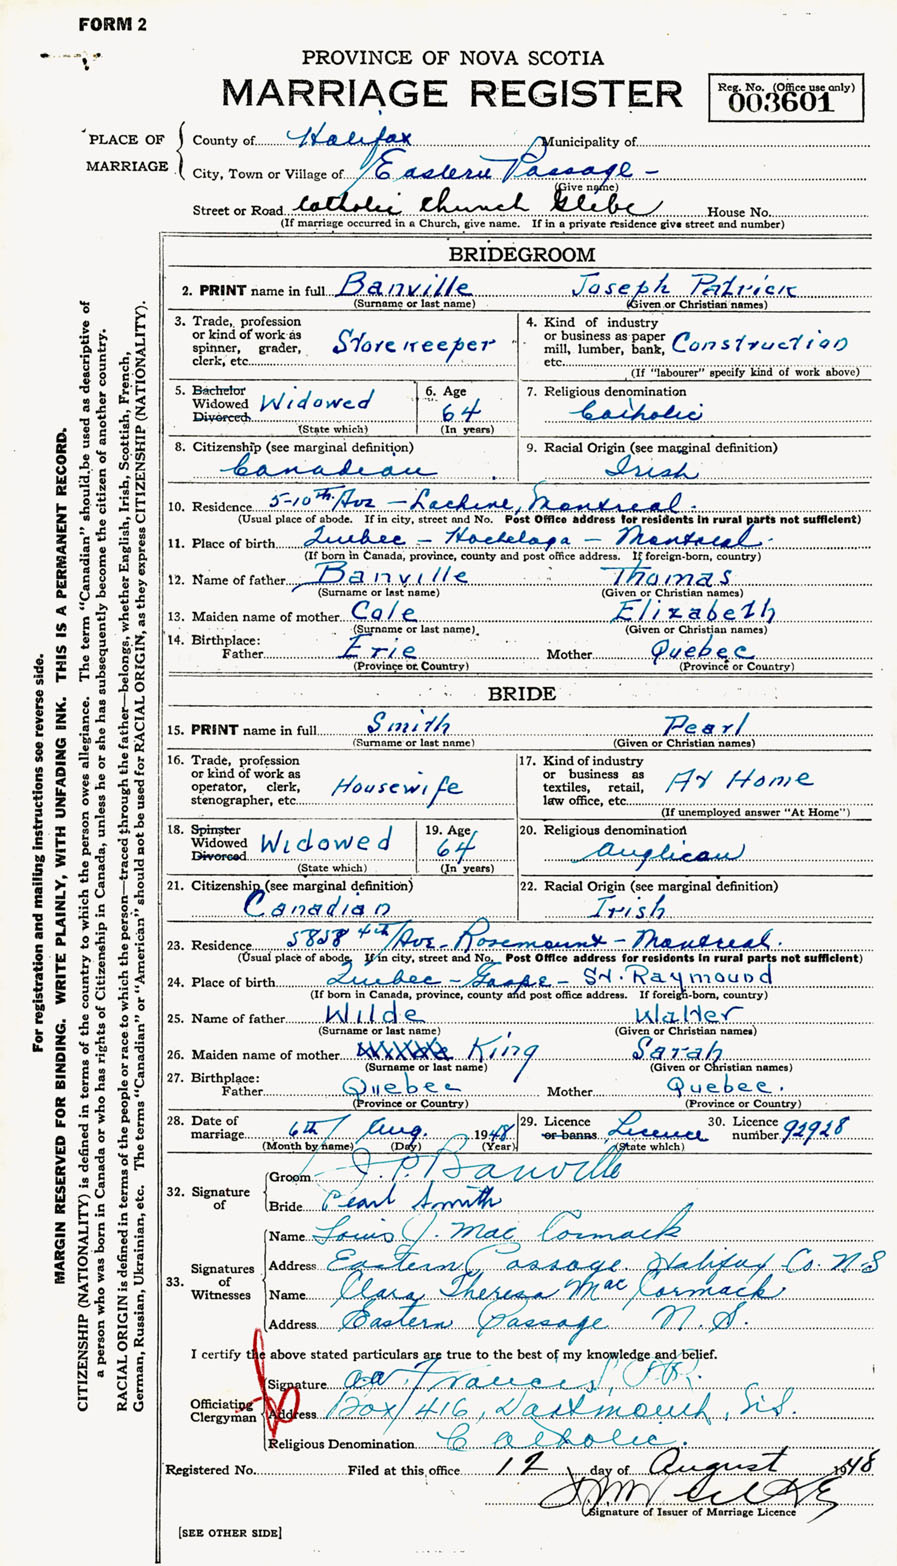 FORM 2
PROVINCE OF NOVA SCOTIA
MARRIAGE REGISTER
Reg. No. (Office use only)
003601
PLACE OF MARRIAGE
County of Halifax Municipality of
City, Town or Village of Eastern Passage -
(Give name)
Street or Road Catholic Church Glebe House No.
(If marriage occurred in a Church, give name. If in a private residence give street and number)
BRIDEGROOM
2. PRINT name in full Banville Joseph Patrick
(Surname or last name) (Given or Christian names)
3. Trade, profession or kind of work as spinner, grader, clerk, etc. Storekeeper
4. Kind of industry or business as paper mill, lumber, bank, etc. Construction
(If "labourer" specify kind of work above)
5. Bachelor Widowed Divorced Widowed
(State which)
6. Age 64
(In years)
7. Religious denomination
Catholic
8. Citizenship (see marginal definition)
Canadian
9. Racial Origin (see marginal definition)
Irish
10. Residence 5-10th Ave - Lachine, Montreal.
(Usual place of abode. If in city, street and No. Post Office address for residents in rural parts not sufficient)
11. Place of birth Quebec - Hochelaga - Montreal.
(If born in Canada, province, county and post office address. If foreign-born, country)
12. Name of father Banville Thomas
(Surname or last name) (Given or Christian names)
13. Maiden name of mother Cole Elizabeth
(Surname or last name) (Given or Christian names)
14. Birthplace:
Father Erie Mother Quebec
(Province or Country) (Province or Country)
BRIDE
15. PRINT name in full Smith Pearl
(Surname or last name) (Given or Christian names)
16. Trade, profession or kind of work as operator, clerk, stenographer, etc. Housewife
17. Kind of industry or business as textiles, retail, law office, etc. At Home
(If unemployed answer "At Home")
18. Spinster Widowed Divorced Widowed
(State which)
19. Age 64
(In years)
20. Religious denomination
Anglican
21. Citizenship (see marginal definition)
Canadian
22. Racial Origin (see marginal definition)
Irish
23. Residence 5858 4th Ave - Rosemount - Montreal.
(Usual place of abode. If in city, street and No. Post Office address for residents in rural parts not sufficient)
24. Place of birth Quebec - Gaspe - St. Raymound
(If born in Canada, province, county and post office address. If foreign-born, country)
25. Name of father Wilde Walter
(Surname or last name) (Given or Christian names)
26. Maiden name of mother King Sarah
(Surname or last name) (Given or Christian names)
27. Birthplace:
Father Quebec Mother Quebec.
(Province or Country) (Province or Country)
28. Date of marriage 6th Aug. 1948
(Month by name) (Day) (Year)
29. Licence or banns Licence
(State which)
30. Licence number 92928
32. Signature of
Groom J. P. Banville
Bride Pearl Smith
33. Signatures of Witnesses
Name Louis J. Mac Cormack
Address Eastern Passage Halifax Co. N.S
Name Clara Theresa Mac Cormack
Address Eastern Passage N.S.
I certify the above stated particulars are true to the best of my knowledge and belief.
Officiating Clergyman
Signature Frances, P.P.
Address Box 416, Dartmouth, N.S.
Religious Denomination Catholic.
Registered No. Filed at this office 12 day of August 1948
Signature of Issuer of Marriage Licence
[SEE OTHER SIDE]
For registration and mailing instructions see reverse side.
MARGIN RESERVED FOR BINDING. WRITE PLAINLY, WITH UNFADING INK. THIS IS A PERMANENT RECORD.
CITIZENSHIP (NATIONALITY) is defined in terms of the country to which the person owes allegiance. The term "Canadian" should be used as descriptive of
a person who was born in Canada or who has rights of Citizenship in Canada, unless he or she has subsequently become the citizen of another country.
RACIAL ORIGIN is defined in terms of the people or race to which the person—traced through the father—belongs, whether English, Irish, Scottish, French,
German, Russian, Ukrainian, etc. The terms "Canadian" or "American" should not be used for RACIAL ORIGIN, as they express CITIZENSHIP (NATIONALITY).